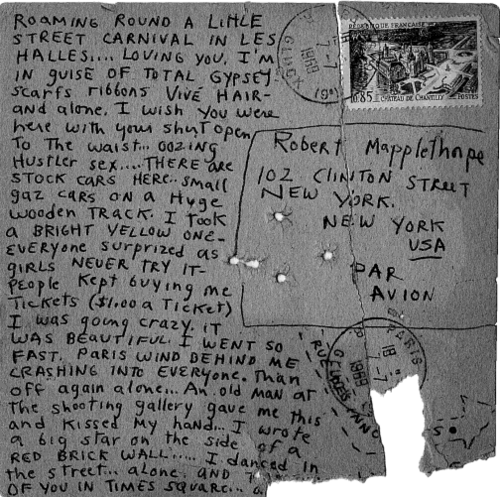 ROAMING ROUND A LITTLE
STREET CARNIVAL IN LES
HALLES.... LOVING YOU. I'M
IN GUISE OF TOTAL GYPSEY
SCARFS RIBBONS VIVE HAIR-
AND ALONE. I WISH YOU WERE
HERE WITH YOUR SHIRT OPEN
TO THE WAIST... OOZING
HUSTLER SEX.... THERE ARE
STOCK CARS HERE.. SMALL
GAZ CARS ON A HUGE
WOODEN TRACK. I TOOK
A BRIGHT YELLOW ONE-
EVERYONE SURPRIZED AS
GIRLS NEVER TRY IT-
PEOPLE KEPT BUYING ME
TICKETS ($1.00 A TICKET)
I WAS GOING CRAZY. IT
WAS BEAUTIFUL. I WENT SO
FAST. PARIS WIND BEHIND ME
CRASHING INTO EVERYONE. THAN
OFF AGAIN ALONE... AN OLD MAN AT
THE SHOOTING GALLERY GAVE ME THIS
AND KISSED MY HAND... I WROTE
A BIG STAR ON THE SIDE OF A
RED BRICK WALL..... I DANCED IN
THE STREET... ALONE. AND
OF YOU IN TIMES SQUARE...
REPUBLIQUE FRANÇAISE
0.85 CHÂTEAU DE CHANTILLY POSTES
Robert Mapplethorpe
102 CLINTON STREET
NEW YORK.
NEW YORK
USA
PAR
AVION
PARIS
18
1969